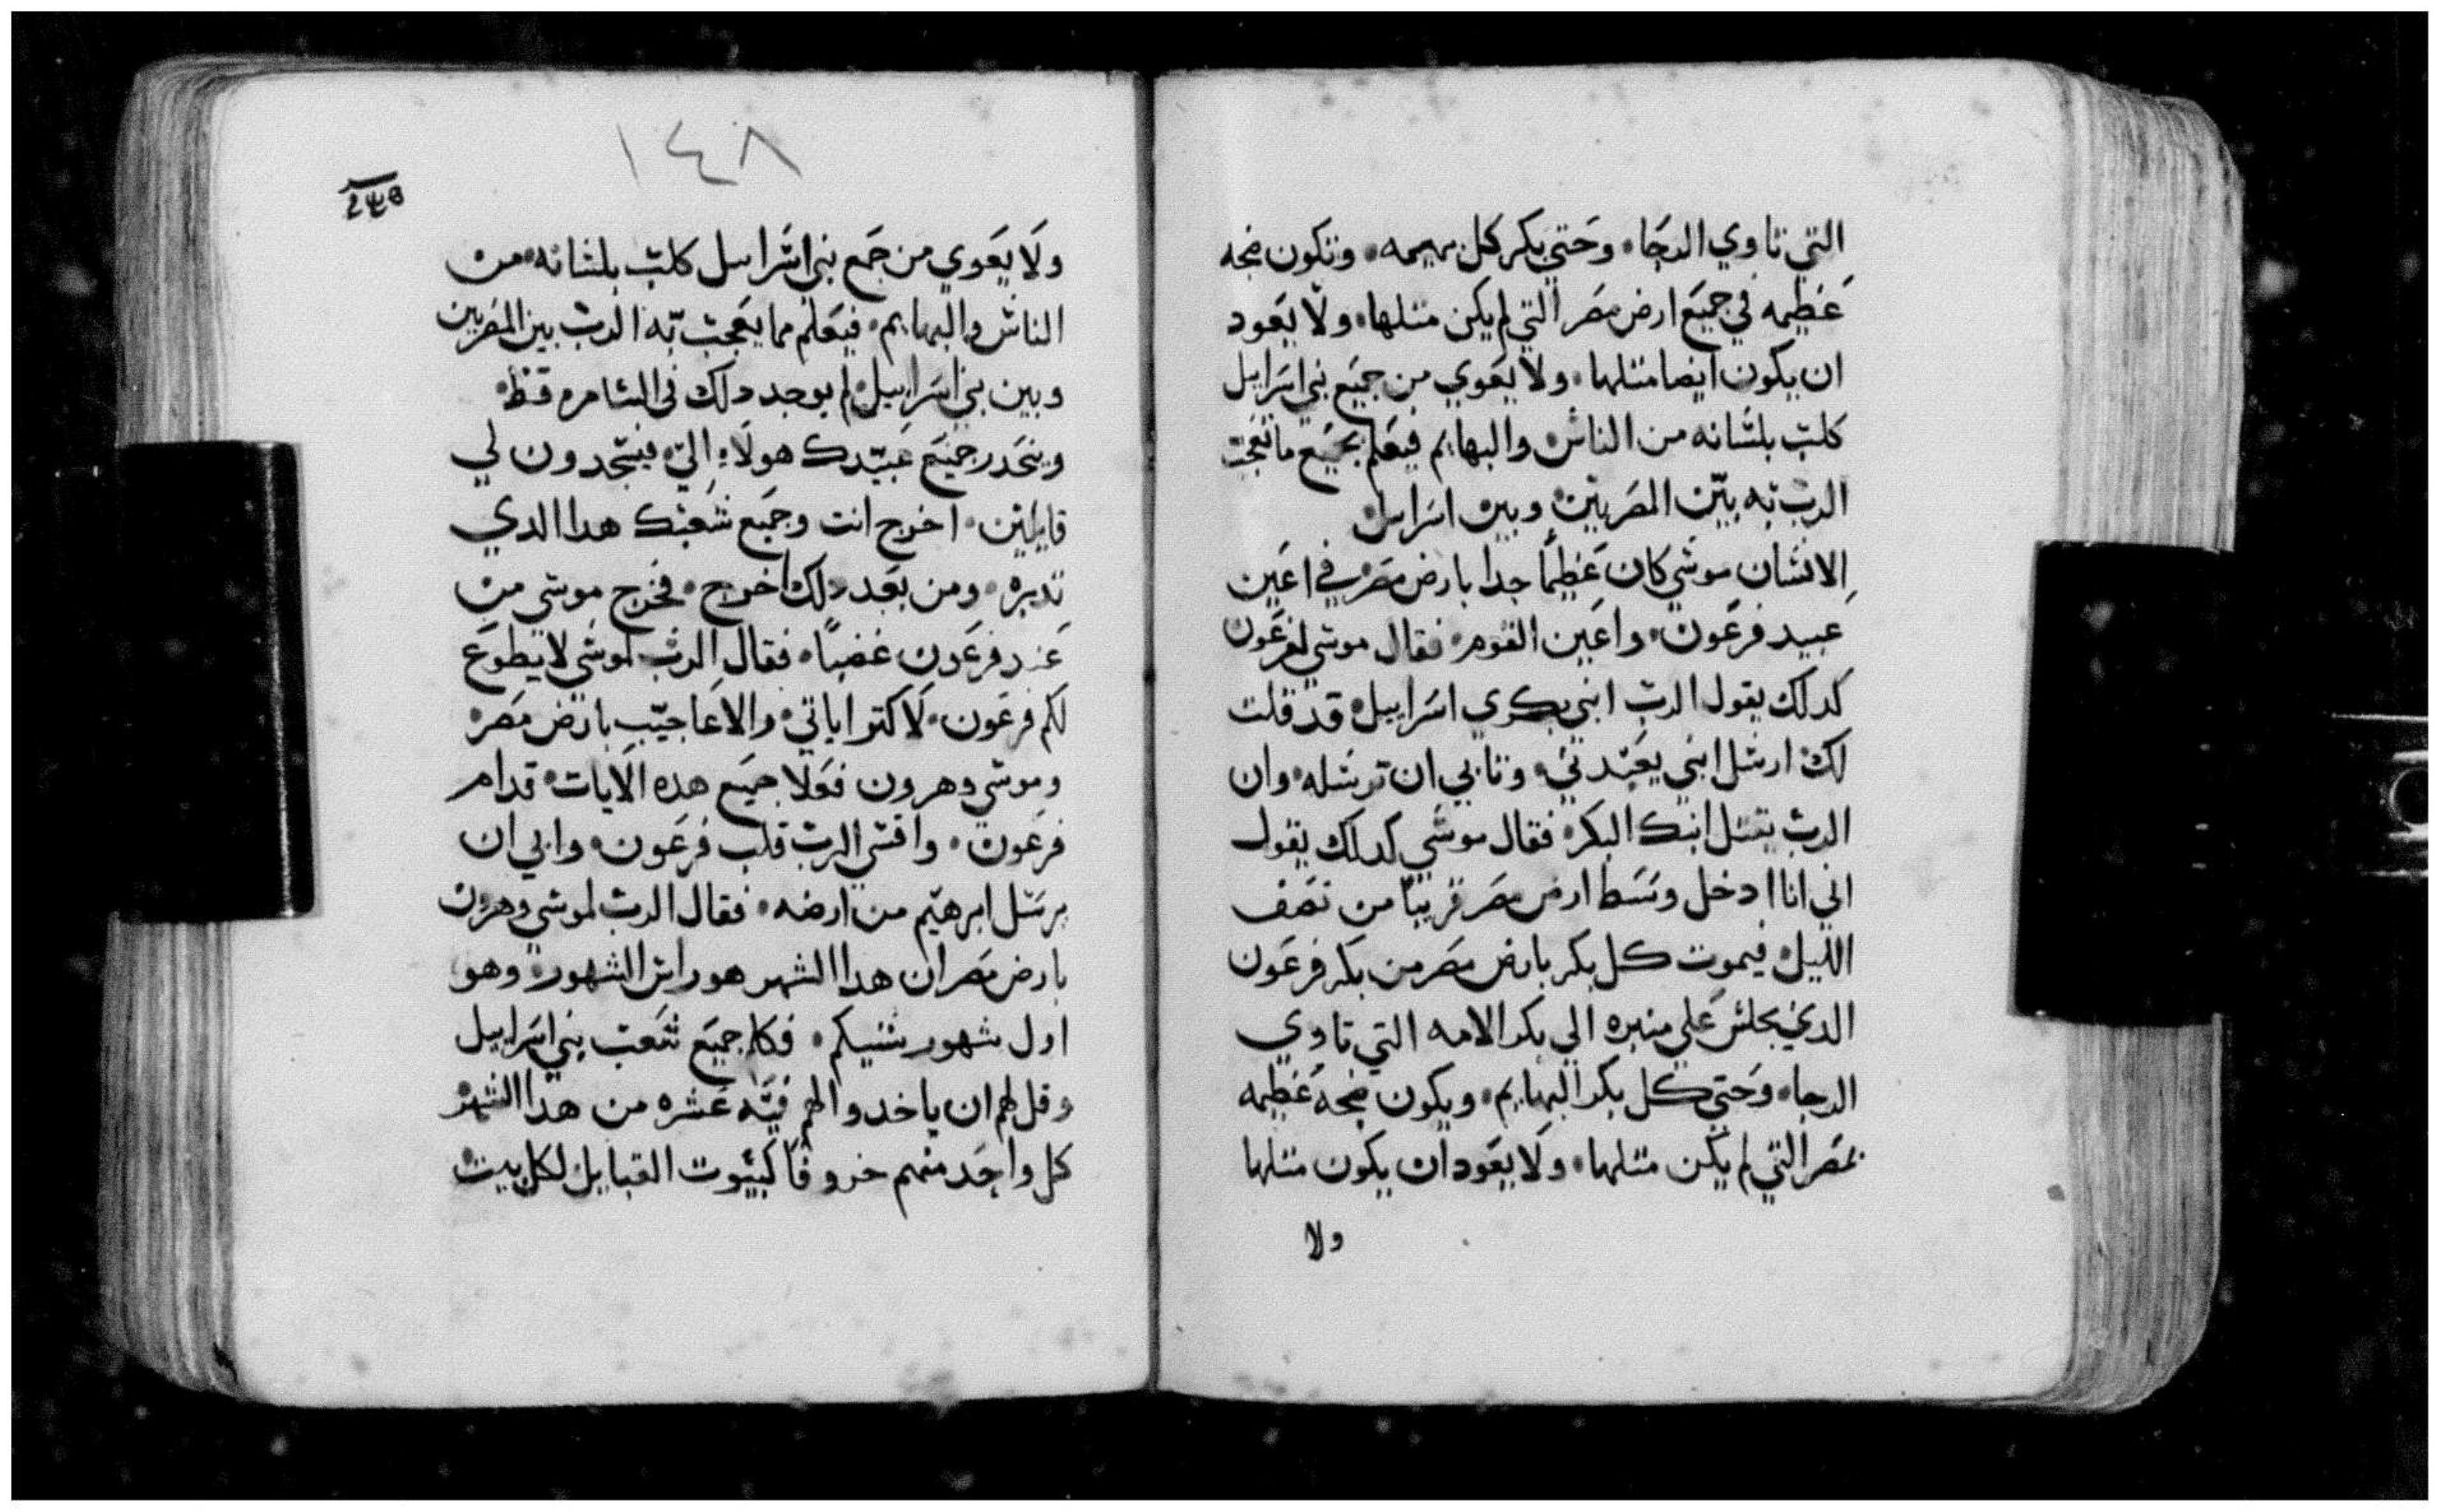 التي تاوي الدجا، وحتي بكر كل بهيمه، وتكون ضجه
عظيمه في جميع ارض مصر التي لم يكن متلها، ولا يعود
ان يكون ايضا متلها، ولا يعوي من جميع بني اسرايل
كلب بلسانه من الناس والبهايم فيعلم بجميع ما تعجب
الرب به بين المصريين وبين اسرايل
الانسان موسي كان عظيما جدا بارض مصر في اعين
عبيد فرعون، واعين القوم، فقال موسي لفرعون
كدلك يقول الرب ابني بكري اسراييل، قد قلت
لك ارسل ابني يعبدني، وتابي ان ترسله، وان
الرب يقتل ابنك البكر، فقال موسي كدلك يقول
اني انا ادخل وسط ارض مصر قريبا من نصف
الليل، فيموت كل بكر بارض مصر من بكر فرعون
الدي يجلس علي منبره الي بكر الامه التي تاوي
الدجا، وحتي كل بكر البهايم، ويكون ضجه عظيمه
بمصر التي لم يكن متلها، ولا يعود ان يكون متلها
ولا
١٤٨
ولا يعوي من جمع بني اسراييل كلب بلسانه، من
الناس والبهايم، فيعلم مما يعجب به الرب بين المصريين
وبين بني اسراييل، لم يوجد دلك في السامره قط،
وينحدر جميع عبيدك هولاء الي، فيسجدون لي
قايلين، اخرج انت وجمع شعبك هدا الدي
تدبره، ومن بعد دلك اخرج، فخرج موسي من
عند فرعون غضبا، فقال الرب لموسي لا يطوع
لكم فرعون، لاكتر اياتي، والاعاجيب بارض مصر،
وموسي وهرون فعلا جميع هده الايات، قدام
فرعون، واقسي الرب قلب فرعون، وابي ان
يرسل ابرهيم من ارضه، فقال الرب لموسي وهرون
بارض مصر ان هدا الشهر هو راس الشهور، وهو
اول شهور سنيكم، فكلم جميع شعب بني اسراييل
وقل لهم ان ياخدوا لهم فيه عشره من هدا الشهر
كل واحد منهم خروفا كبيوت القبايل لكل بيت